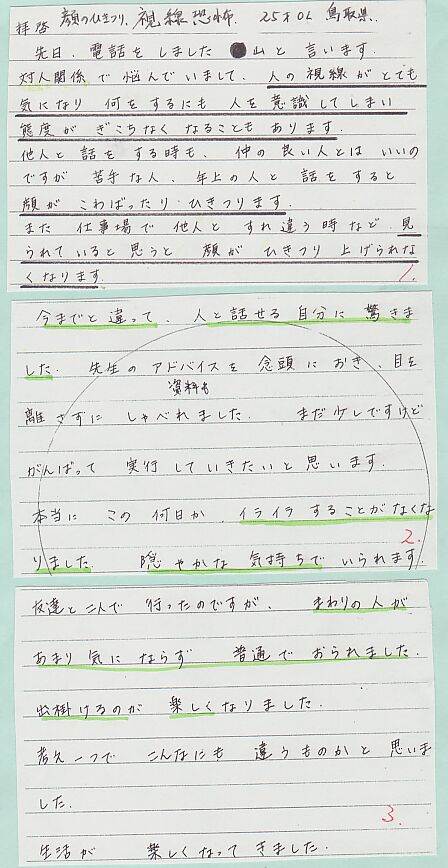 拝啓 顔のひきつり、視線恐怖. 25才 OL 鳥取県.
先日、電話をしました 山と言います.
対人関係で悩んでいまして、人の視線がとても
気になり 何をするにも 人を意識してしまい
態度が ぎこちなく なることも あります.
他人と 話を する時も、仲の良い人とは いいの
ですが 苦手な人、年上の人と 話を すると
顔が こわばったり・ひきつります.
また 仕事場で 他人と すれ違う時など、見
られていると思うと 顔が ひきつり 上げられな
くなります. 1.
今までと違って、人と話せる自分に驚きま
した. 先生の アドバイスを 念頭におき、目を
資料も
離さずに しゃべれました. まだ少しですけど
がんばって 実行していきたいと思います.
本当に この何日か、イライラすることがなくな
りました. 穏やかな気持ちで いられます. 2.
友達と二人で 行ったのですが、まわりの人が
あまり気にならず 普通で おられました.
出掛けるのが 楽しくなりました.
考え一つで こんなにも 違うものかと 思いま
した. 3.
生活が 楽しくなって きました.